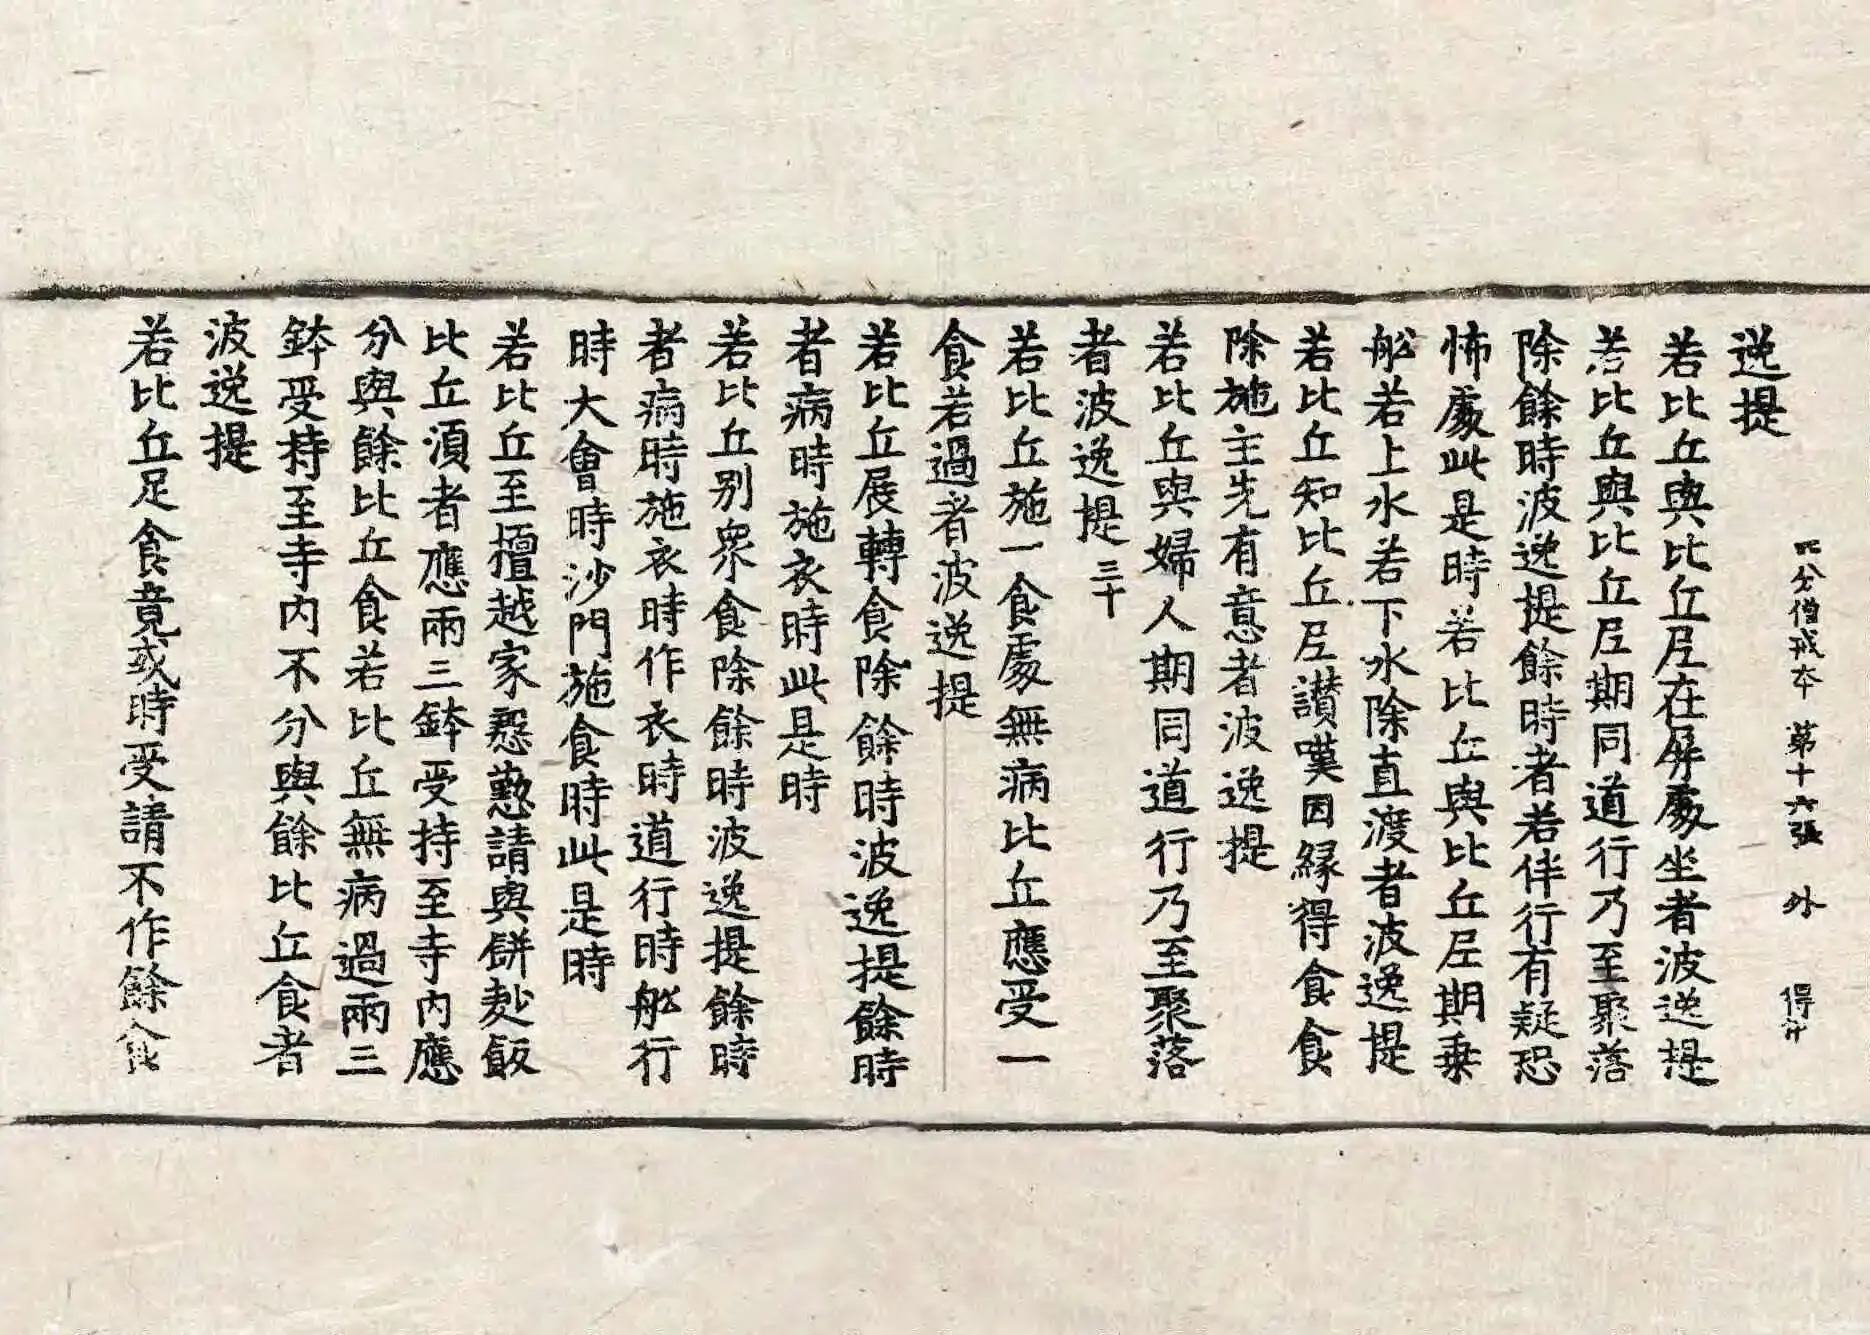 四分僧戒本 第十六張 外 得才
逸提
若比丘與比丘尼在屏處坐者波逸提
若比丘與比丘尼期同道行乃至聚落
除餘時波逸提餘時者若伴行有疑恐
怖處此是時若比丘與比丘尼期乗
船若上水若下水除直渡者波逸提
若比丘知比丘尼讃嘆因縁得食食
除施主先有意者波逸提
若比丘與婦人期同道行乃至聚落
者波逸提三十
若比丘施一食處無病比丘應受一
食若過者波逸提
若比丘展轉食除餘時波逸提餘時
者病時施衣時此是時
若比丘別衆食除餘時波逸提餘時
者病時施衣時作衣時道行時船行
時大會時沙門施食時此是時
若比丘至檀越家慇懃請與餅麨飯
比丘湏者應兩三鉢受持至寺內應
分與餘比丘食若比丘無病過兩三
鉢受持至寺內不分與餘比丘食者
波逸提
若比丘足食竟或時受請不作餘食